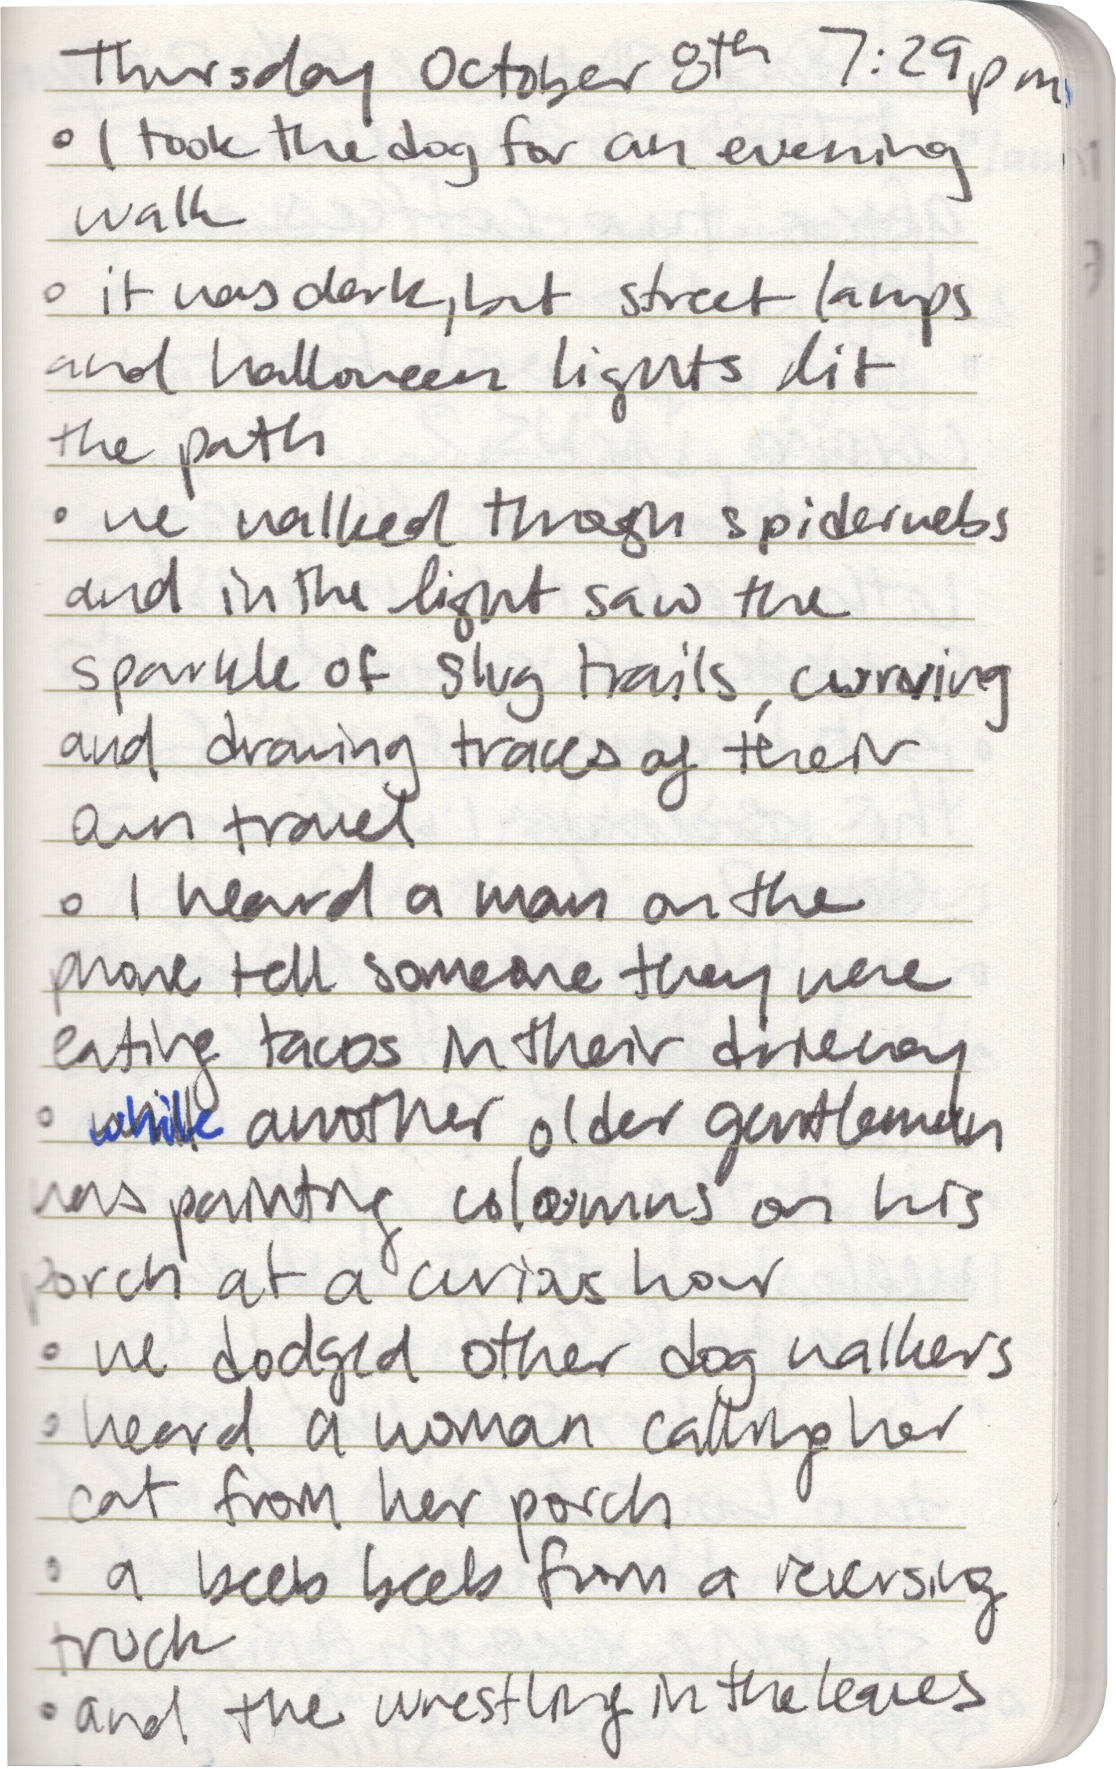 Thursday October 8th 7:29pm
• I took the dog for an evening
walk
• it was dark, but street lamps
and halloween lights lit
the path
• we walked through spiderwebs
and in the light saw the
sparkle of slug trails, curving
and drawing traces of their
own travel
• I heard a man on the
phone tell someone they were
eating tacos in their driveway
• while another older gentleman
was painting coloumns on his
porch at a curious hour
• we dodged other dog walkers
• heard a woman calling her
cat from her porch
• a beeb beeb from a reversing
truck
• and the wrestling in the leaves